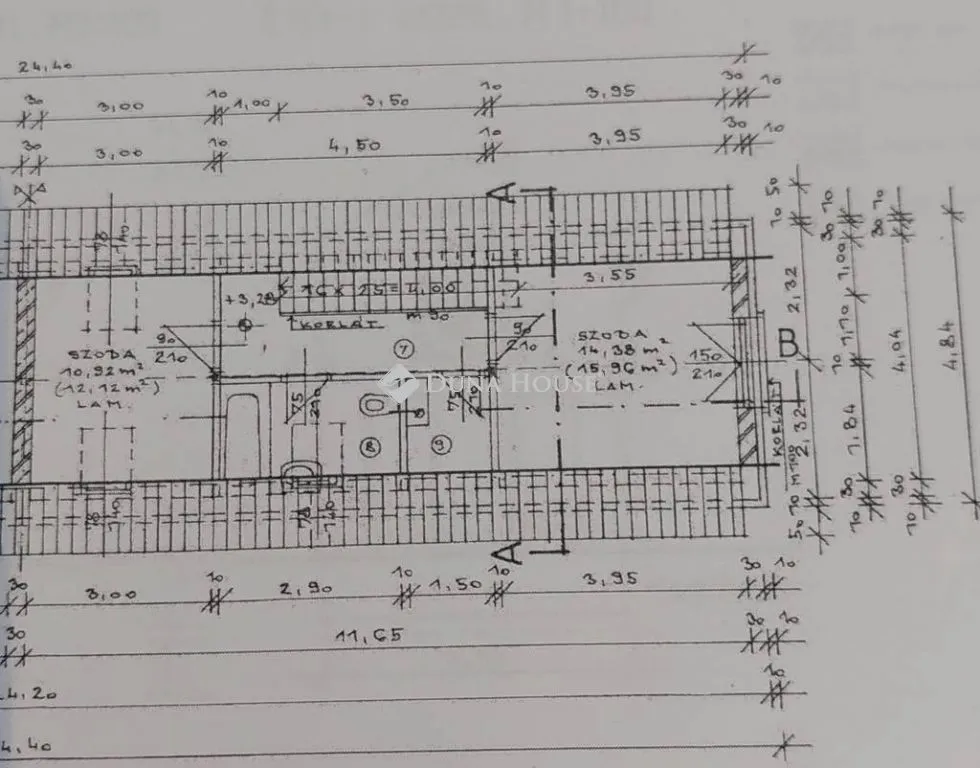 24,40
30 3,00 10 1,00 3,50 10 3,95 30 10
30 3,00 10 4,50 10 3,95 30 10
A
78
140
3,55
+3,28
16 x 25 = 4,00
m 90
KORLÁT
90
210
SZOBA
10,92 m²
(12,12 m²)
LAM.
7
90
210
SZOBA
14,38 m²
(15,96 m²)
LAM.
150
210
B
KORLÁT
DUNA HOUSE
75
210
75
210
8
9
78
140
78
140
A
50
10
2,32
2,32
10
50
30 10
1,00
1,10
10
1,84
30
10
30 10
4,04
30
10
4,84
30 3,00 10 2,90 10 1,50 10 3,95 30 10
30 11,65 30
4,20
4,40